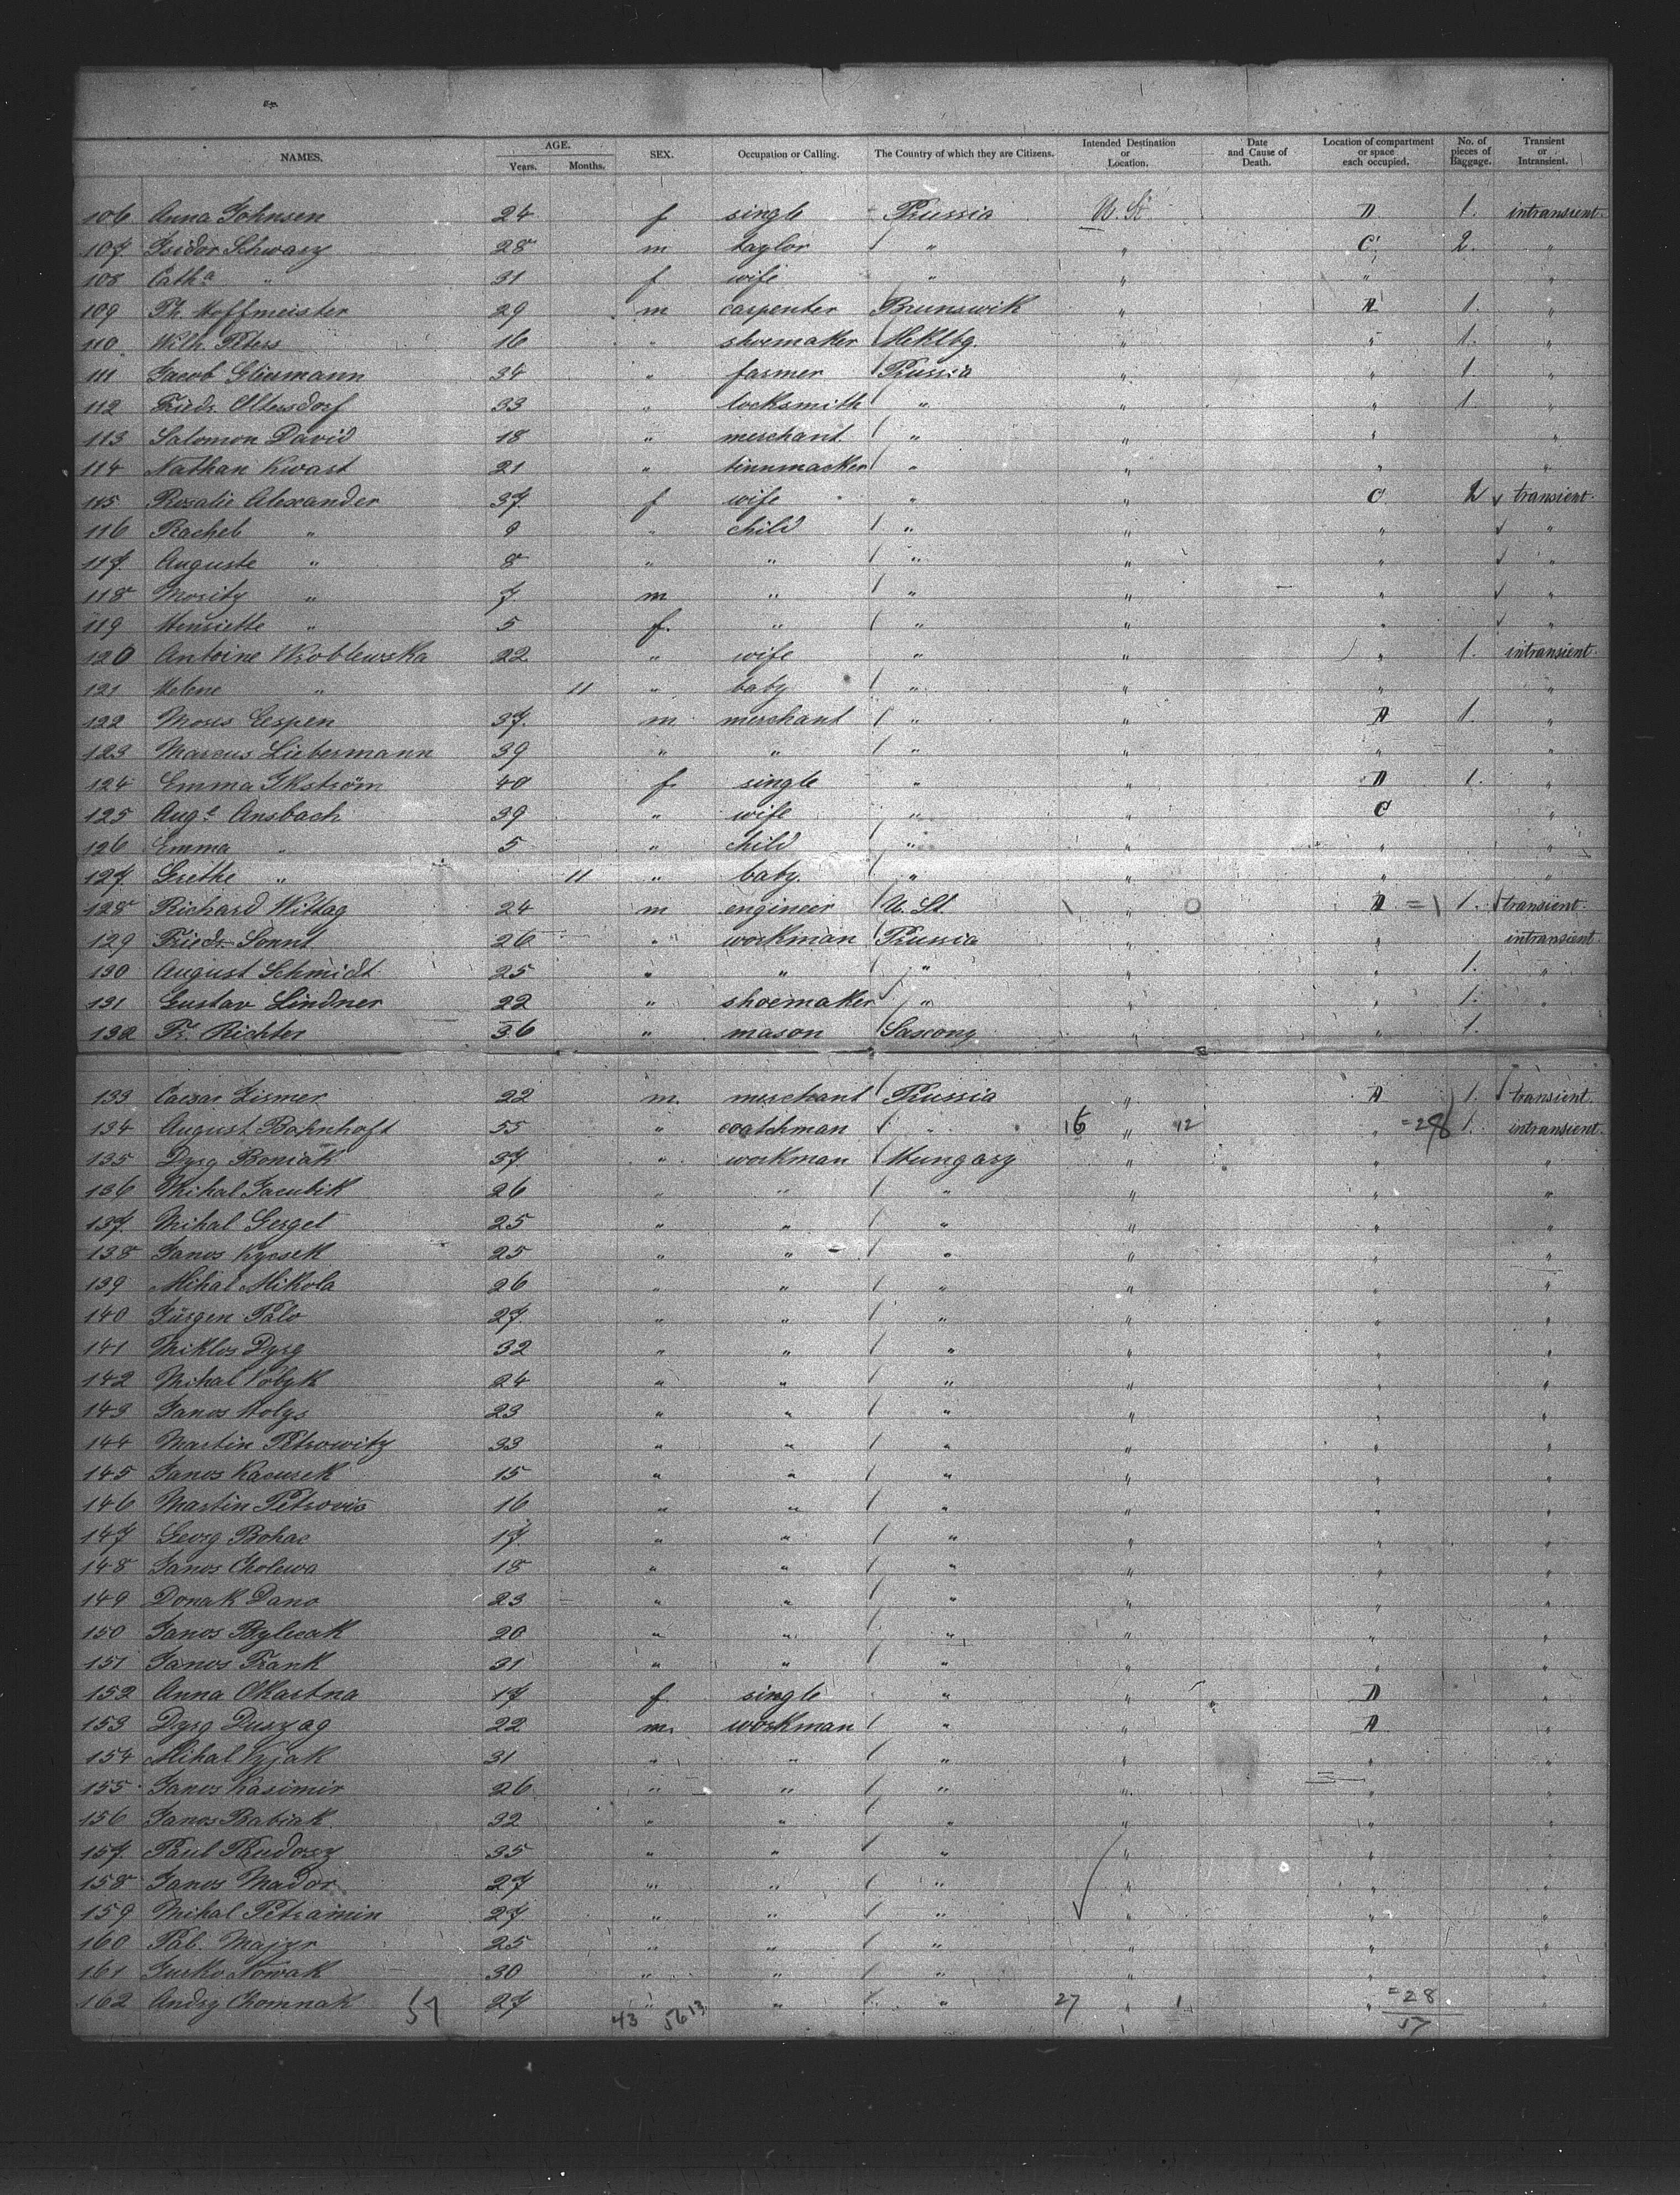 NAMES. AGE. Years. Months. SEX. Occupation or Calling. The Country of which they are Citizens. Intended Destination or Location. Date and Cause of Death. Location of compartment or space each occupied. No. of pieces of Baggage. Transient or Intransient.
106 Anna Johnsen 24 f single Prussia U. St. D 1. intransient.
107 Isidor Schwarz 28 m taylor " " C 2. "
108 Cath.a " 31 f wife " " " "
109 Th. Hoffmeister 29 m carpenter Brunswik " A 1. "
110 Wilh. Peters 16 " shoemaker Meklbg. " " 1. "
111 Jacob Gliesmann 34 " farmer Prussia " " 1. "
112 Friedr. Oltersdorf 33 " locksmith " " " 1. "
113 Salomon David 18 " merchant " " " "
114 Nathan Kwast 21 " tinnmacker " " " "
115 Rosalie Alexander 37. f wife " " C 2 transient.
116 Rachel " 9 " child " " " "
117 Auguste " 8 " " " " " "
118 Moritz " 7 m " " " " "
119 Henriette " 5 f. " " " " "
120 Antoine Wroblewska 22 " wife " " " 1. intransient.
121 Helene " 11 " baby " " " "
122 Moses Cespen 37. m merchant " " A 1. "
123 Marcus Liebermann 39 " " " " " "
124 Emma Ikström 40 f single " " D 1. "
125 Aug.e Ansbach 39 " wife " " C "
126 Emma " 5 " child " " " "
127 Grethe " 11 " baby. " " " "
128 Richard Wittag 24 m engineer U. St. " 0 A =1 1. transient.
129 Friedr. Sonnt 26 " workman Prussia " " intransient.
130 August Schmidt 25 " " " " " 1. "
131 Gustav Lindner 22 " shoemaker " " " 1. "
132 Fr. Richter 36 " mason Saxony " " 1.
133 Caesar Lismer 22 m. merchant Prussia " A 1. transient.
134 August Bahnhoft 55 " coatchman " 16 " 12 " =28 1. intransient.
135 Dyrg Boniak 37 " workman Hungary " " "
136 Mihal Jacubik 26 " " " " " "
137. Mihal Gerget 25 " " " " " "
138 Janos Kycsek 25 " " " " " "
139 Mihal Mikola 26 " " " " " "
140 Jürgen Palo 27. " " " " " "
141 Miklos Dyrg 32 " " " " " "
142 Mihal Vobyk 24 " " " " " "
143 Janos Holys 23 " " " " " "
144 Martin Petrowitz 33 " " " " " "
145 Janos Kacusek 15 " " " " " "
146 Martin Petrovis 16 " " " " " "
147 Georg Bohac 17. " " " " " "
148 Janos Cholewa 18 " " " " " "
149 Donak Dano 23 " " " " " "
150 Janos Brylecak 20 " " " " " "
151 Janos Frank 31 " " " " " "
152 Anna Okastna 17 f single " " D "
153 Dyrg Duszag 22 m. workman " " A "
154 Mihal Vyjak 31 " " " " " "
155 Janos Kasimir 26 " " " " " "
156 Janos Babiak 32 " " " " " "
157. Paul Paudosz 35 " " " " " "
158 Janos Mador 27 " " " " " "
159 Mihal Petramin 27. " " " " " "
160 Pal. Majzr 25 " " " " " "
161 Jurko Nowak 30 " " " " " "
162 Andrg Chomnak 27 " " " 27 " 1 " =28 "
57 43 56 13 57